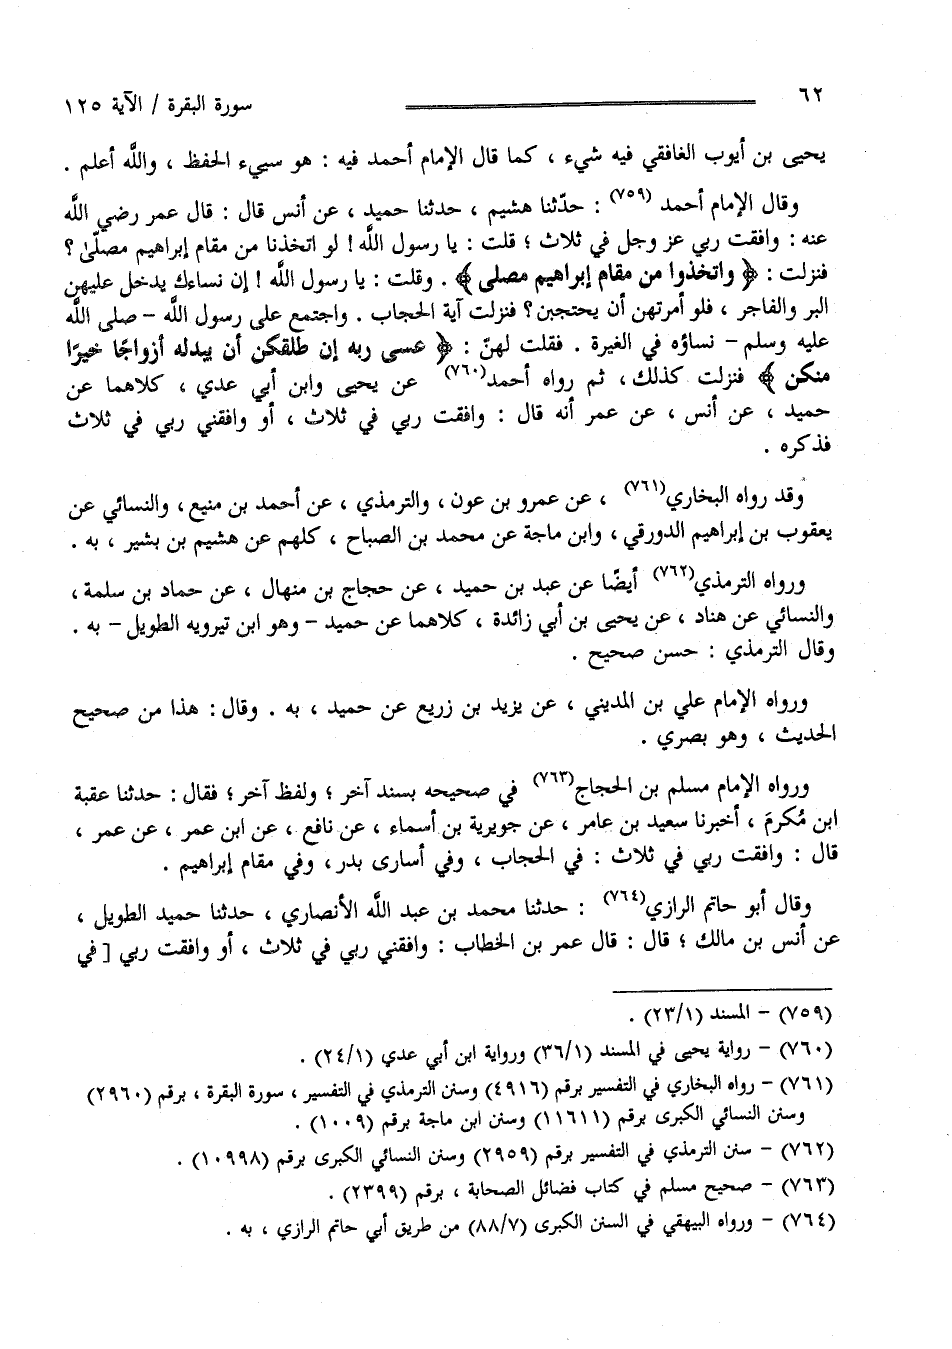 ٦٢
سورة البقرة / الآية ١٢٥
يحيى بن أيوب الغافقي فيه شيء ، كما قال الإمام أحمد فيه : هو سييء الحفظ ، واللَّه أعلم .
وقال الإمام أحمد (٧٥٩) : حدّثنا هشيم ، حدثنا حميد ، عن أنس قال : قال عمر رضي اللَّه
عنه : وافقت ربي عز وجل في ثلاث ؛ قلت : يا رسول اللَّه ! لو اتخذنا من مقام إبراهيم مصلّىٰ ؟
فنزلت : ﴿ واتخذوا من مقام إبراهيم مصلى ﴾ . وقلت : يا رسول اللَّه ! إن نساءك يدخل عليهن
البر والفاجر ، فلو أمرتهن أن يحتجبن ؟ فنزلت آية الحجاب . واجتمع على رسول اللَّه – صلى اللَّه
عليه وسلم – نساؤه في الغيرة . فقلت لهنّ : ﴿ عسى ربه إن طلقكن أن يبدله أزواجًا خيرًا
منكن ﴾ فنزلت كذلك ، ثم رواه أحمد (٧٦٠) عن يحيى وابن أبي عدي ، كلاهما عن
حميد ، عن أنس ، عن عمر أنه قال : وافقت ربي في ثلاث ، أو وافقني ربي في ثلاث
فذكره .
وقد رواه البخاري (٧٦١) ، عن عمرو بن عون ، والترمذي ، عن أحمد بن منيع ، والنسائي عن
يعقوب بن إبراهيم الدورقي ، وابن ماجة عن محمد بن الصباح ، كلهم عن هشيم بن بشير ، به .
ورواه الترمذي (٧٦٢) أيضًا عن عبد بن حميد ، عن حجاج بن منهال ، عن حماد بن سلمة ،
والنسائي عن هناد ، عن يحيى بن أبي زائدة ، كلاهما عن حميد – وهو ابن تيرويه الطويل – به .
وقال الترمذي : حسن صحيح .
ورواه الإمام علي بن المديني ، عن يزيد بن زريع عن حميد ، به . وقال : هذا من صحيح
الحديث ، وهو بصري .
ورواه الإمام مسلم بن الحجاج (٧٦٣) في صحيحه بسند آخر ؛ ولفظ آخر ؛ فقال : حدثنا عقبة
ابن مُكرمَ ، أخبرنا سعيد بن عامر ، عن جويرية بن أسماء ، عن نافع ، عن ابن عمر ، عن عمر ،
قال : وافقت ربي في ثلاث : في الحجاب ، وفي أسارى بدر ، وفي مقام إبراهيم .
وقال أبو حاتم الرازي (٧٦٤) : حدثنا محمد بن عبد اللَّه الأنصاري ، حدثنا حميد الطويل ،
عن أنس بن مالك ؛ قال : قال عمر بن الخطاب : وافقني ربي في ثلاث ، أو وافقت ربي [ في
(٧٥٩) – المسند (٢٣/١) .
(٧٦٠) – رواية يحيى في المسند (٣٦/١) ورواية ابن أبي عدي (٢٤/١) .
(٧٦١) – رواه البخاري في التفسير برقم (٤٩١٦) وسنن الترمذي في التفسير ، سورة البقرة ، برقم (٢٩٦٠)
وسنن النسائي الكبرى برقم (١١٦١١) وسنن ابن ماجة برقم (١٠٠٩) .
(٧٦٢) – سنن الترمذي في التفسير برقم (٢٩٥٩) وسنن النسائي الكبرى برقم (١٠٩٩٨) .
(٧٦٣) – صحيح مسلم في كتاب فضائل الصحابة ، برقم (٢٣٩٩) .
(٧٦٤) – ورواه البيهقي في السنن الكبرى (٨٨/٧) من طريق أبي حاتم الرازي ، به .